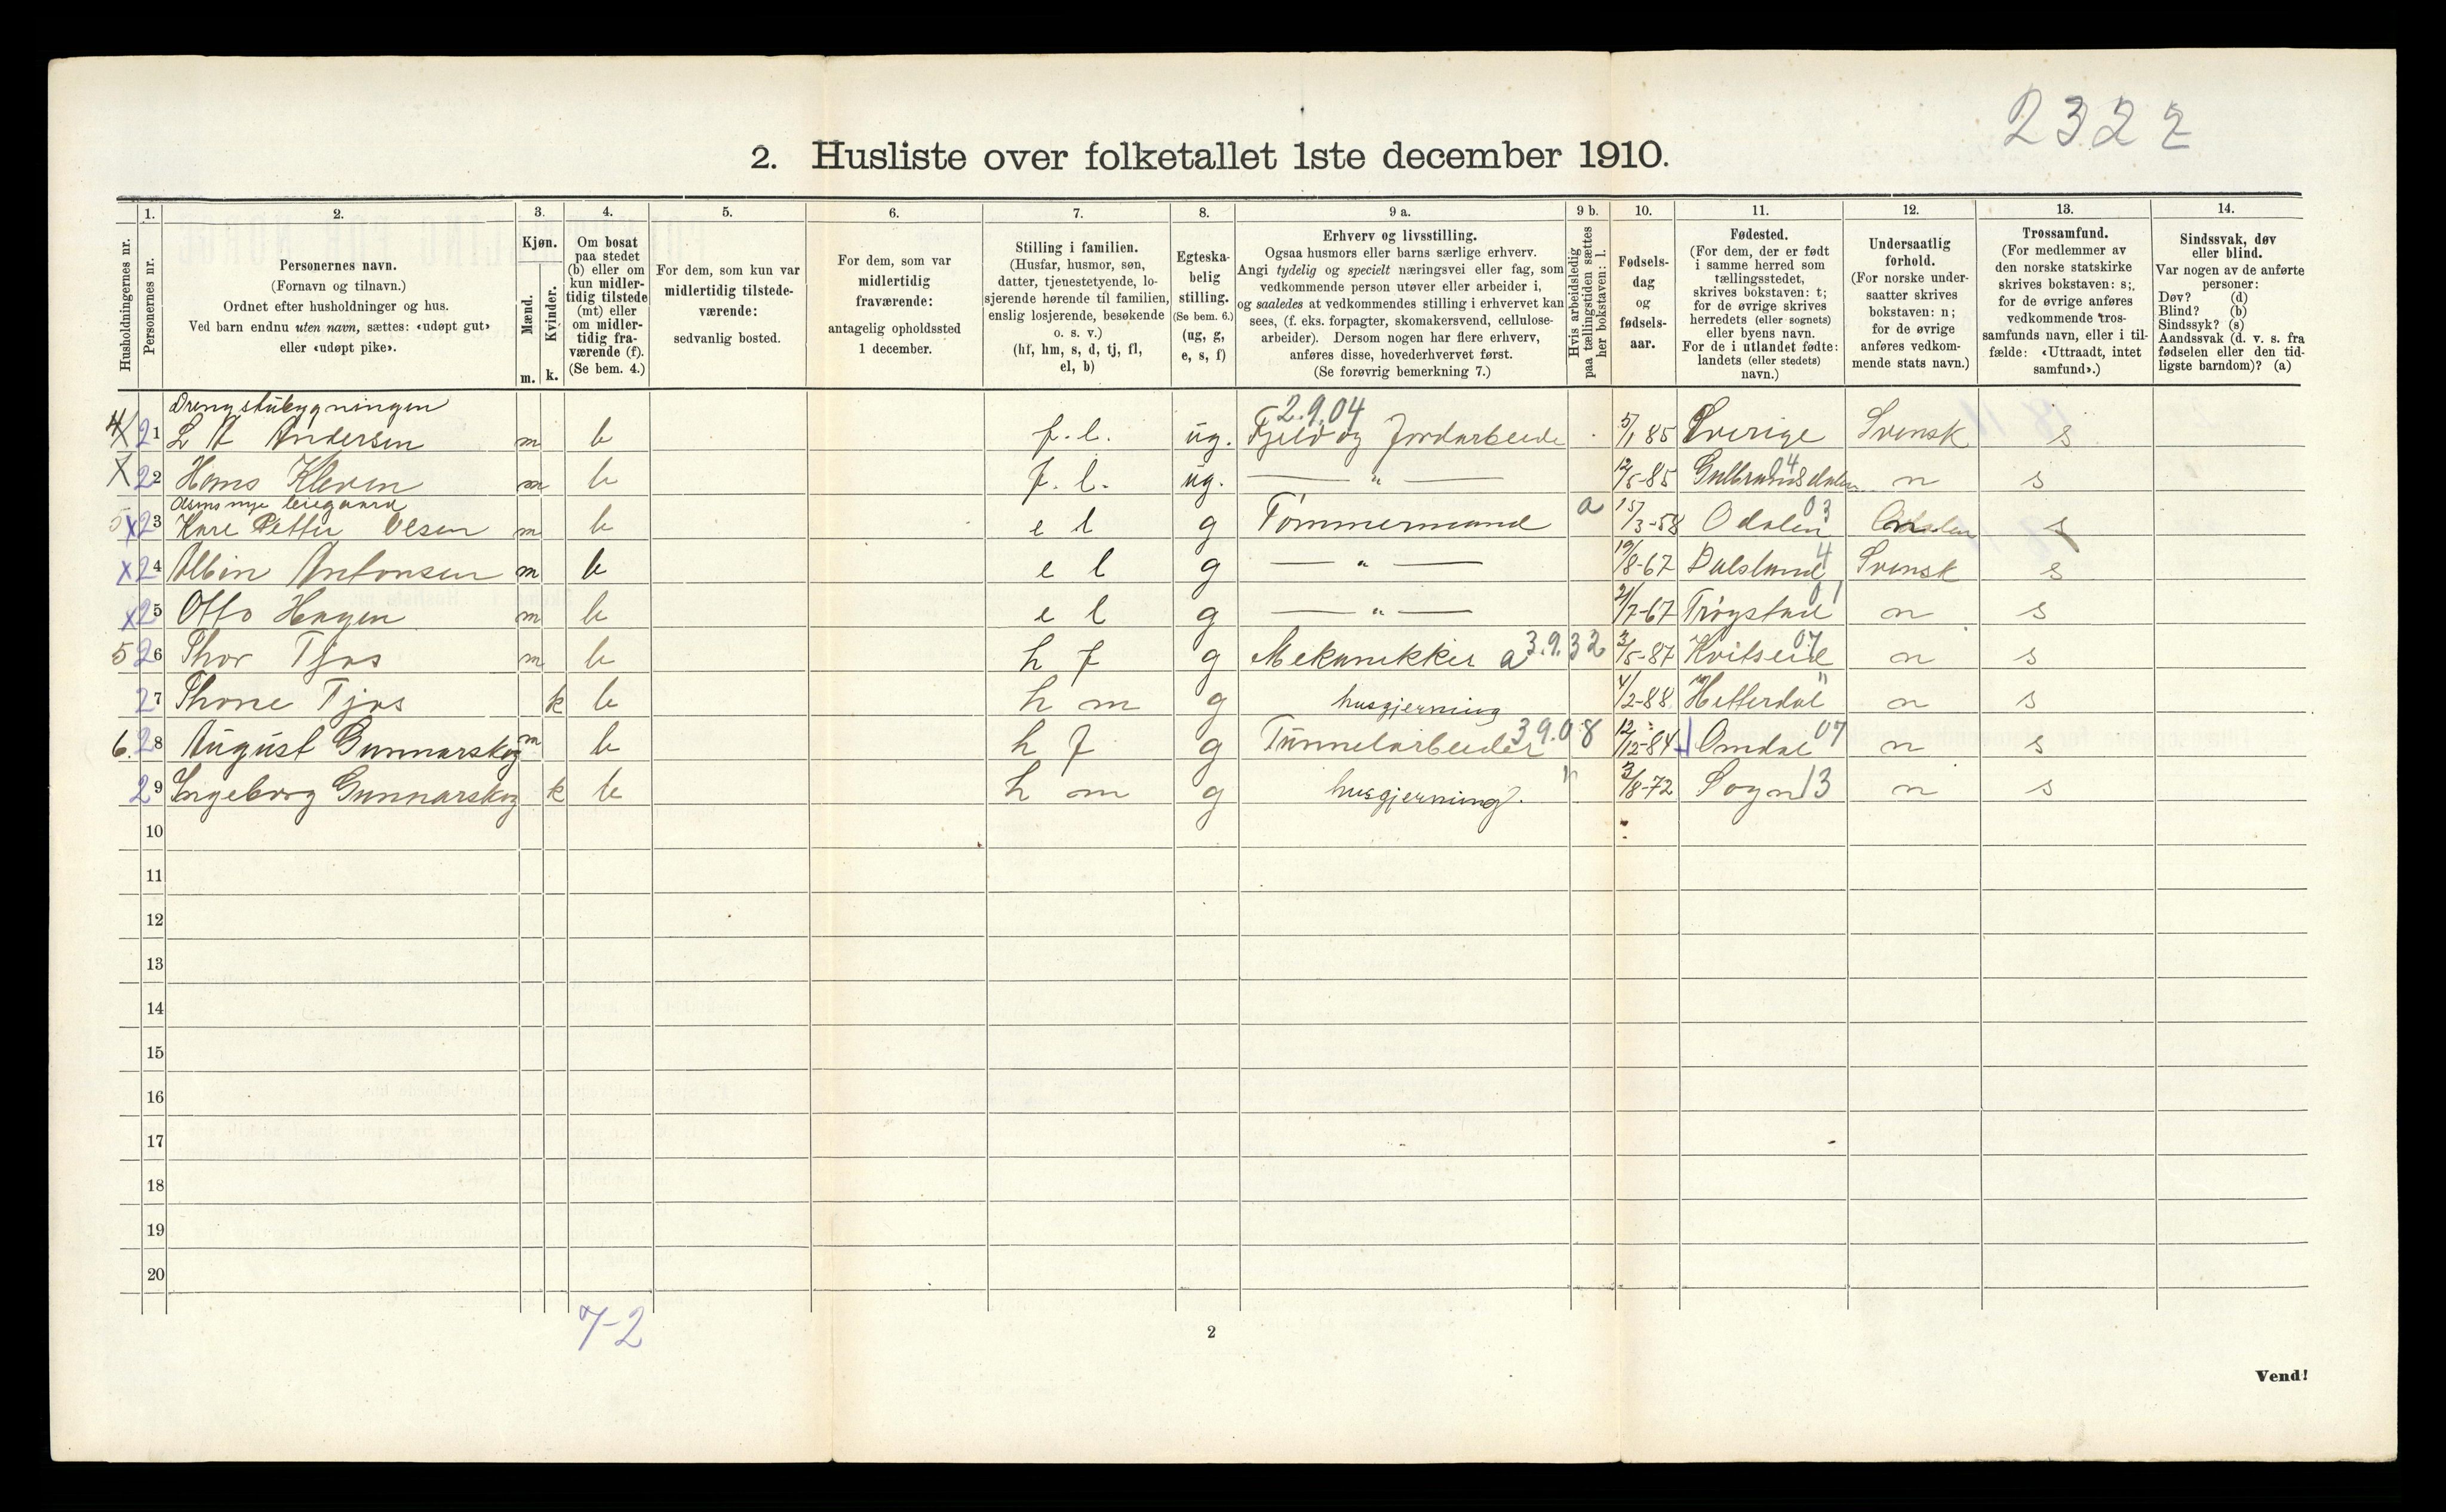 2322
2. Husliste over folketallet 1ste december 1910.
Husholdningernes nr.
1.
Personernes nr.
2.
Personernes navn.
(Fornavn og tilnavn.)
Ordnet efter husholdninger og hus.
Ved barn endnu uten navn, sættes: «udøpt gut»
eller «udøpt pike».
3.
Kjøn.
Mænd.
m.
Kvinder.
k.
4.
Om bosat
paa stedet
(b) eller om
kun midler-
tidig tilstede
(mt) eller
om midler-
tidig fra-
værende (f).
(Se bem. 4.)
5.
For dem, som kun var
midlertidig tilstede-
værende:
sedvanlig bosted.
6.
For dem, som var
midlertidig
fraværende:
antagelig opholdssted
1 december.
7.
Stilling i familien.
(Husfar, husmor, søn,
datter, tjenestetyende, lo-
sjerende hørende til familien,
enslig losjerende, besøkende
o. s. v.)
(hf, hm, s, d, tj, fl,
el, b)
8.
Egteska-
belig
stilling.
(Se bem. 6.)
(ug, g,
e, s, f)
9 a.
Erhverv og livsstilling.
Ogsaa husmors eller barns særlige erhverv.
Angi tydelig og specielt næringsvei eller fag, som
vedkommende person utøver eller arbeider i,
og saaledes at vedkommendes stilling i erhvervet kan
sees, (f. eks. forpagter, skomakersvend, cellulose-
arbeider). Dersom nogen har flere erhverv,
anføres disse, hovederhvervet først.
(Se forøvrig bemerkning 7.)
9 b.
Hvis arbeidsledig
paa tællingstiden sættes
her bokstaven: l.
10.
Fødsels-
dag
og
fødsels-
aar.
11.
Fødested.
(For dem, der er født
i samme herred som
tællingsstedet,
skrives bokstaven: t;
for de øvrige skrives
herredets (eller sognets)
eller byens navn.
For de i utlandet fødte:
landets (eller stedets)
navn.)
12.
Undersaatlig
forhold.
(For norske under-
saatter skrives
bokstaven: n;
for de øvrige
anføres vedkom-
mende stats navn.)
13.
Trossamfund.
(For medlemmer av
den norske statskirke
skrives bokstaven: s;
for de øvrige anføres
vedkommende tros-
samfunds navn, eller i til-
fælde: «Uttraadt, intet
samfund».)
14.
Sindssvak, døv
eller blind.
Var nogen av de anførte
personer:
Døv? (d)
Blind? (b)
Sindssyk? (s)
Aandssvak (d. v. s. fra
fødselen eller den tid-
ligste barndom)? (a)
Drengstubygningen 2.9.04
4 X 21 L A Andersen m b f. l. ug. Fjeld og Jordarbeide 5/1 85 Sverige Svensk s
X 22 Hans Kleven m b f. l. ug. — " — 12/5-85 Gulbrandsdalen 04 n s
nye leiegaard
5 X 23 Kare Petter Olsen m b e l g Tømmermand a 15/3-58 Odalen 03 n s
X 24 Albin Antonsen m b e l g — " — 19/8-67 Dalsland 4 Svensk s
X 25 Otto Hagen m b e l g — " — 21/7-67 Trøgstad 01 n s
5 26 Thor Tjos m b h f g Mekanikker a 3.9.32 3/5-87 Kvitseid 07 n s
27 Thone Tjos k b h m g husgjerning 4/2-88 Hitterdal " n s
6. 28 August Gunnarskog m b h f g Tunnelarbeider 3 9.08 12/12-84 Omdal 07 n s
29 Ingeborg Gunnarskog k b h m g husgjerning. " 3/8-72 Sogn 13 n s
10
11
12
13
14
15
16
17
18
19
20
7-2
2
Vend!